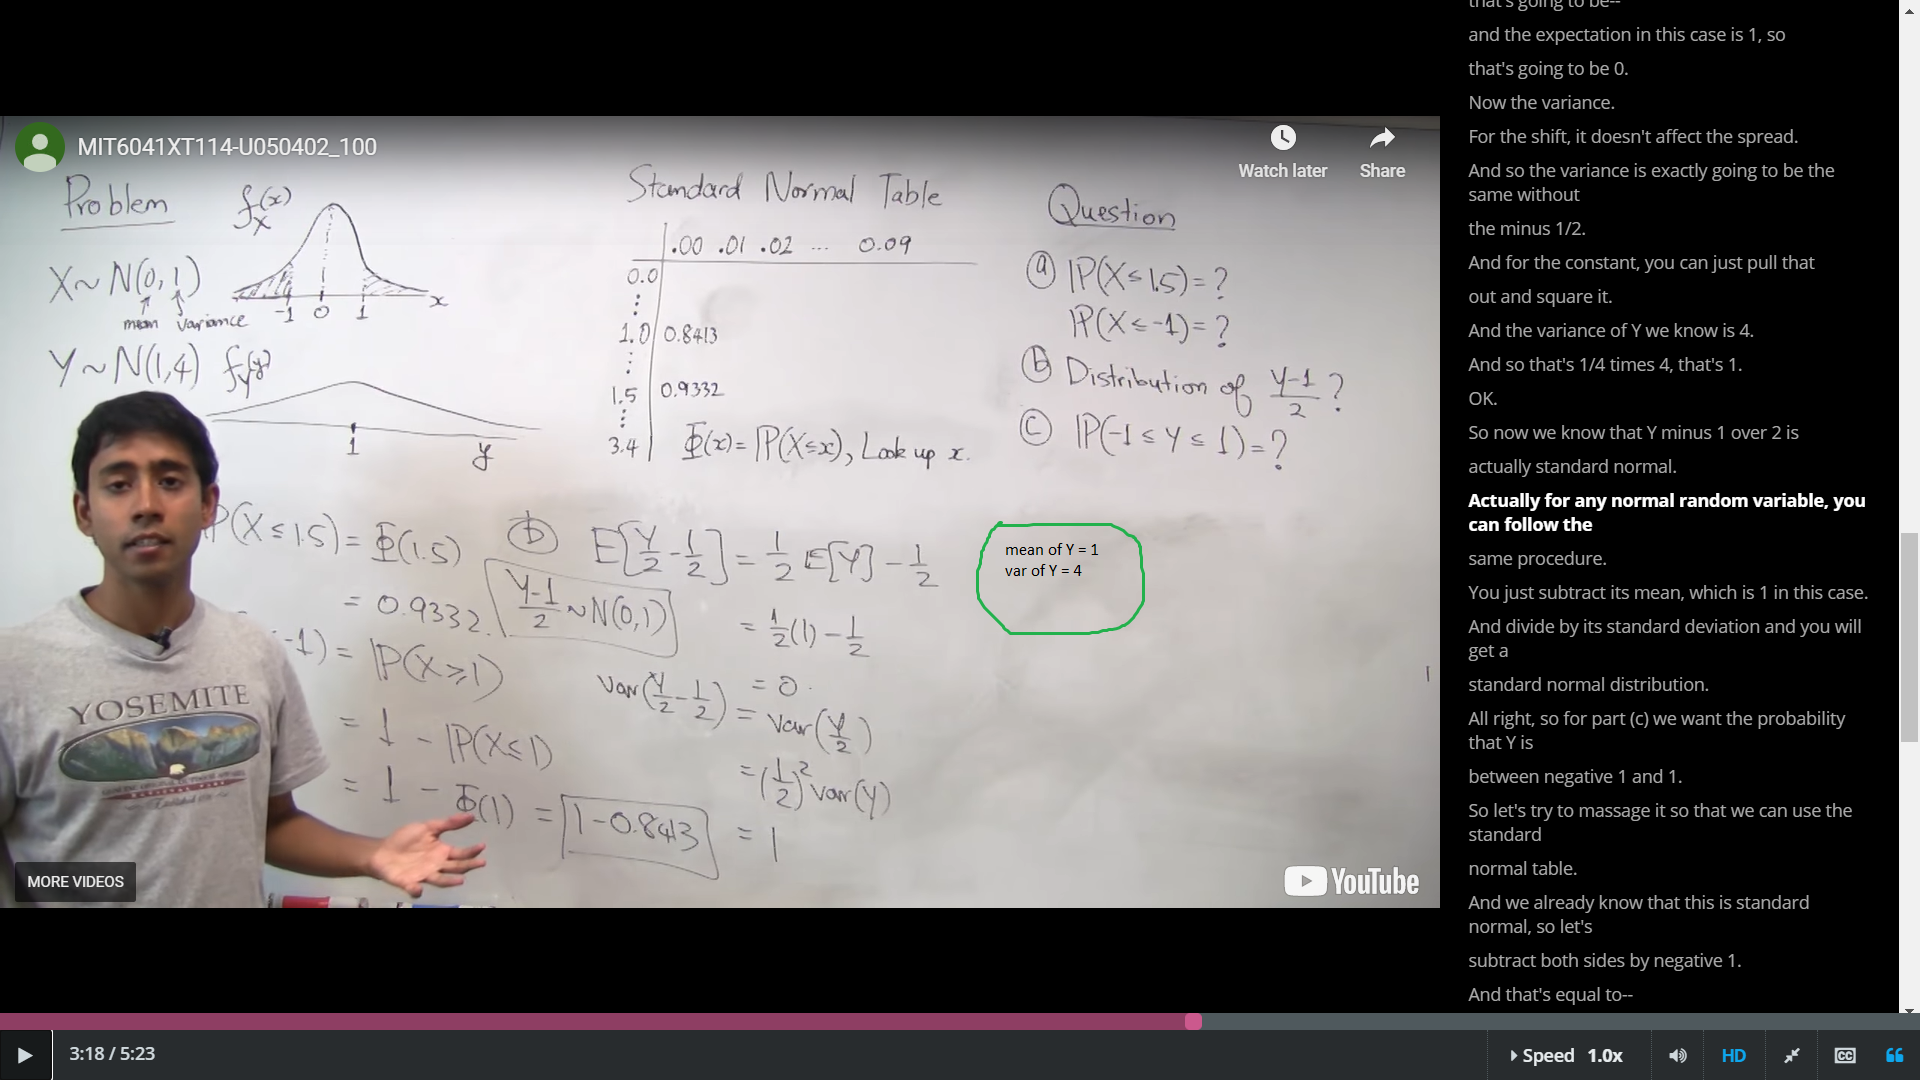 MIT6041XT114-U050402_100
Watch later
Share
Problem
f_X(x)
X ~ N(0, 1)
mean variance
-1 0 1 x
Y ~ N(1,4) f_Y(y)
1 y
Standard Normal Table
.00 .01 .02 ... 0.09
0.0
⋮
1.0 0.8413
⋮
1.5 0.9332
⋮
3.4 Φ(x) = P(X≤x), Look up x.
Question
(a) P(X ≤ 1.5) = ?
P(X ≤ -1) = ?
(b) Distribution of (Y-1)/2 ?
(c) P(-1 ≤ Y ≤ 1) = ?
P(X ≤ 1.5) = Φ(1.5)
= 0.9332.
-1) = P(X ≥ 1)
= 1 - P(X ≤ 1)
= 1 - Φ(1) = 1-0.8413
(b) E[Y/2 - 1/2] = 1/2 E[Y] - 1/2
(Y-1)/2 ~ N(0,1)
= 1/2(1) - 1/2
= 0.
Var(Y/2 - 1/2) = Var(Y/2)
= (1/2)² Var(Y)
= 1
mean of Y = 1
var of Y = 4
YOSEMITE
MORE VIDEOS
YouTube
that's going to be--
and the expectation in this case is 1, so
that's going to be 0.
Now the variance.
For the shift, it doesn't affect the spread.
And so the variance is exactly going to be the
same without
the minus 1/2.
And for the constant, you can just pull that
out and square it.
And the variance of Y we know is 4.
And so that's 1/4 times 4, that's 1.
OK.
So now we know that Y minus 1 over 2 is
actually standard normal.
Actually for any normal random variable, you
can follow the
same procedure.
You just subtract its mean, which is 1 in this case.
And divide by its standard deviation and you will
get a
standard normal distribution.
All right, so for part (c) we want the probability
that Y is
between negative 1 and 1.
So let's try to massage it so that we can use the
standard
normal table.
And we already know that this is standard
normal, so let's
subtract both sides by negative 1.
And that's equal to--
3:18 / 5:23
Speed 1.0x
HD
CC